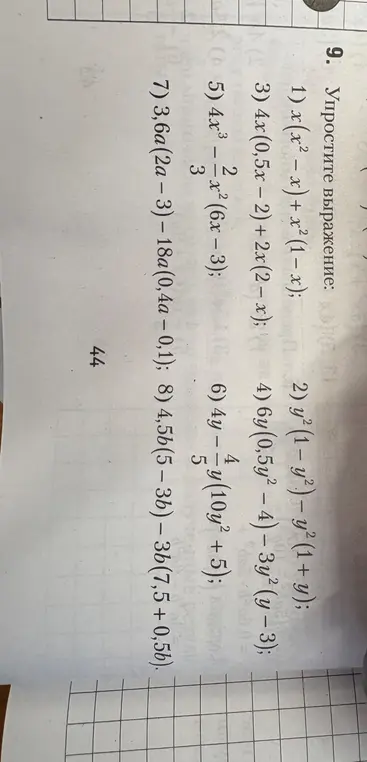 9. Упростите выражение:
1) x(x² − x) + x²(1 − x); 2) y²(1 − y²) − y²(1 + y);
3) 4x(0,5x − 2) + 2x(2 − x); 4) 6y(0,5y² − 4) − 3y²(y − 3);
5) 4x³ − 2/3 x²(6x − 3); 6) 4y − 4/5 y(10y² + 5);
7) 3,6a(2a − 3) − 18a(0,4a − 0,1); 8) 4,5b(5 − 3b) − 3b(7,5 + 0,5b).
44